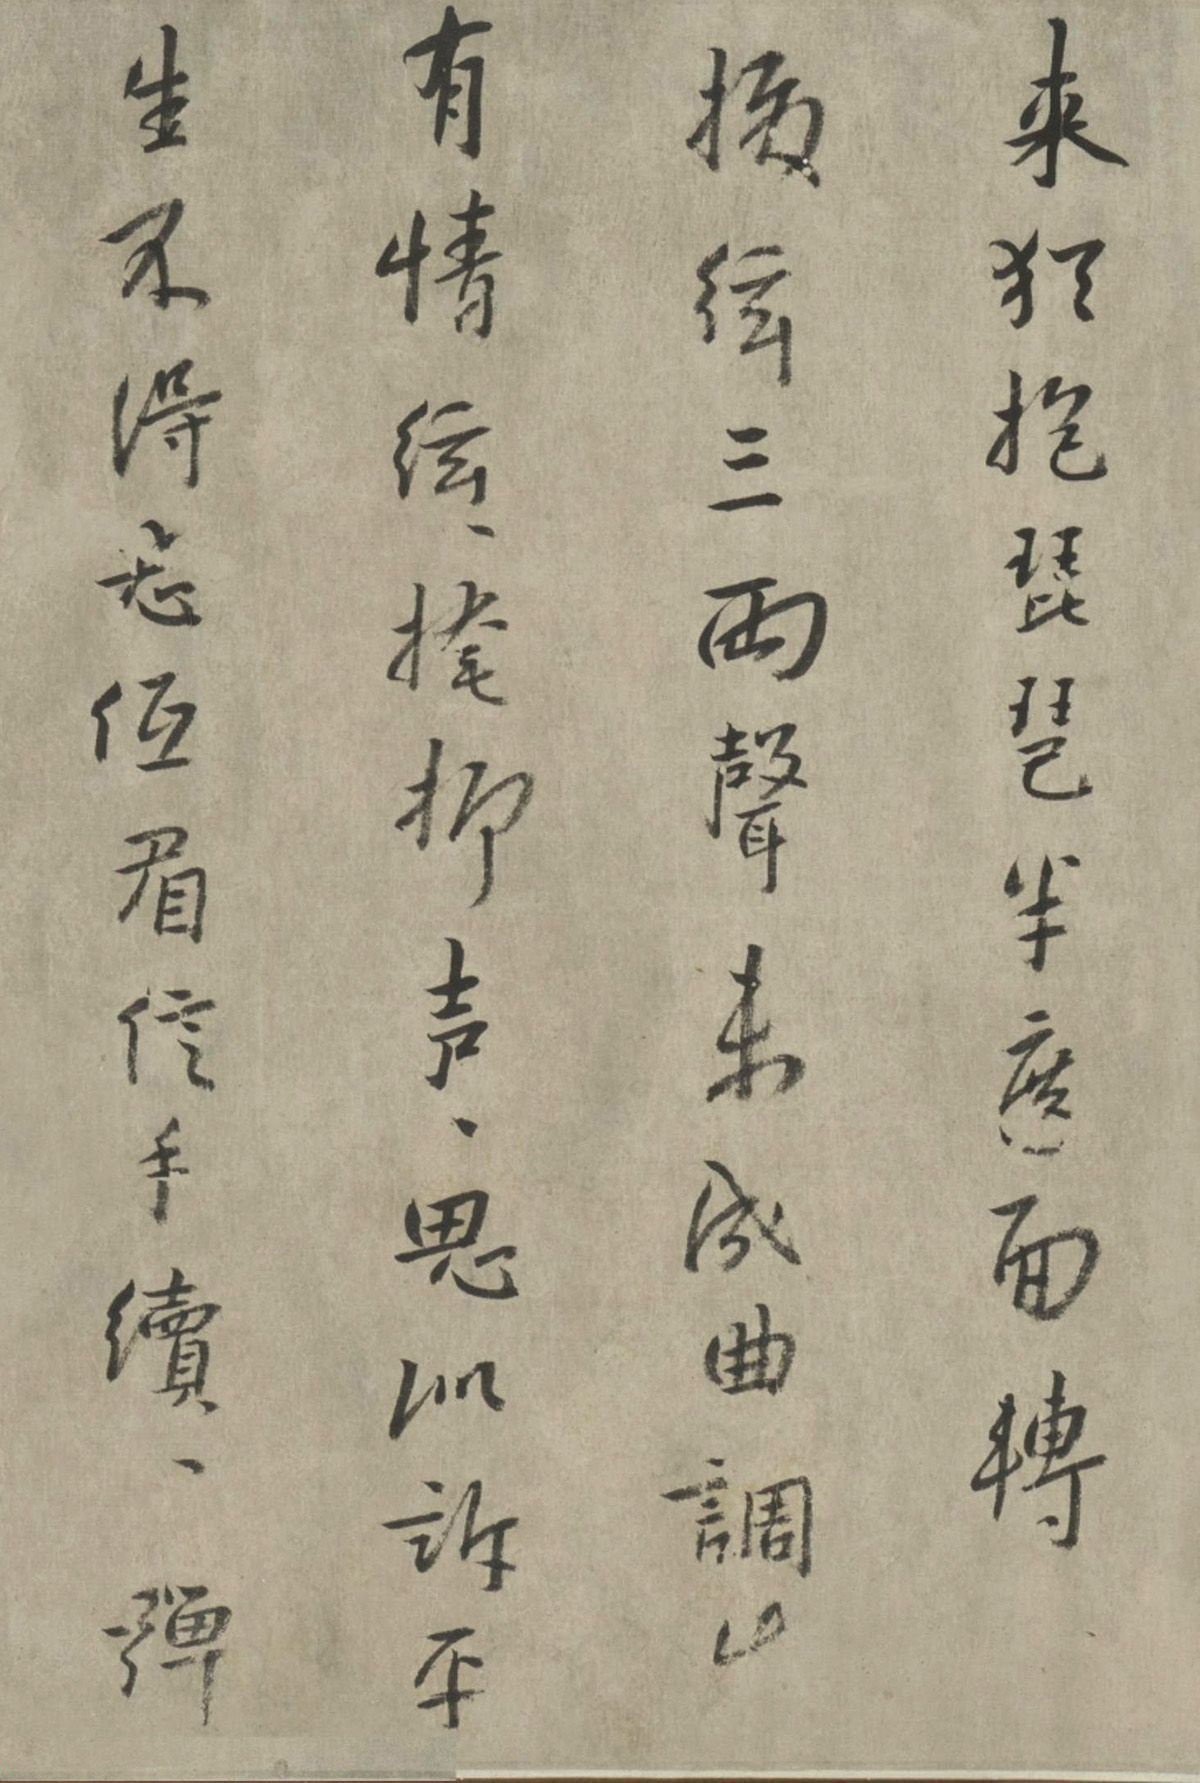 来猶抱琵琶半遮面轉
撥絃三兩聲未成曲調先
有情絃、掩抑声、思似訴平
生不得志低眉信手續、彈